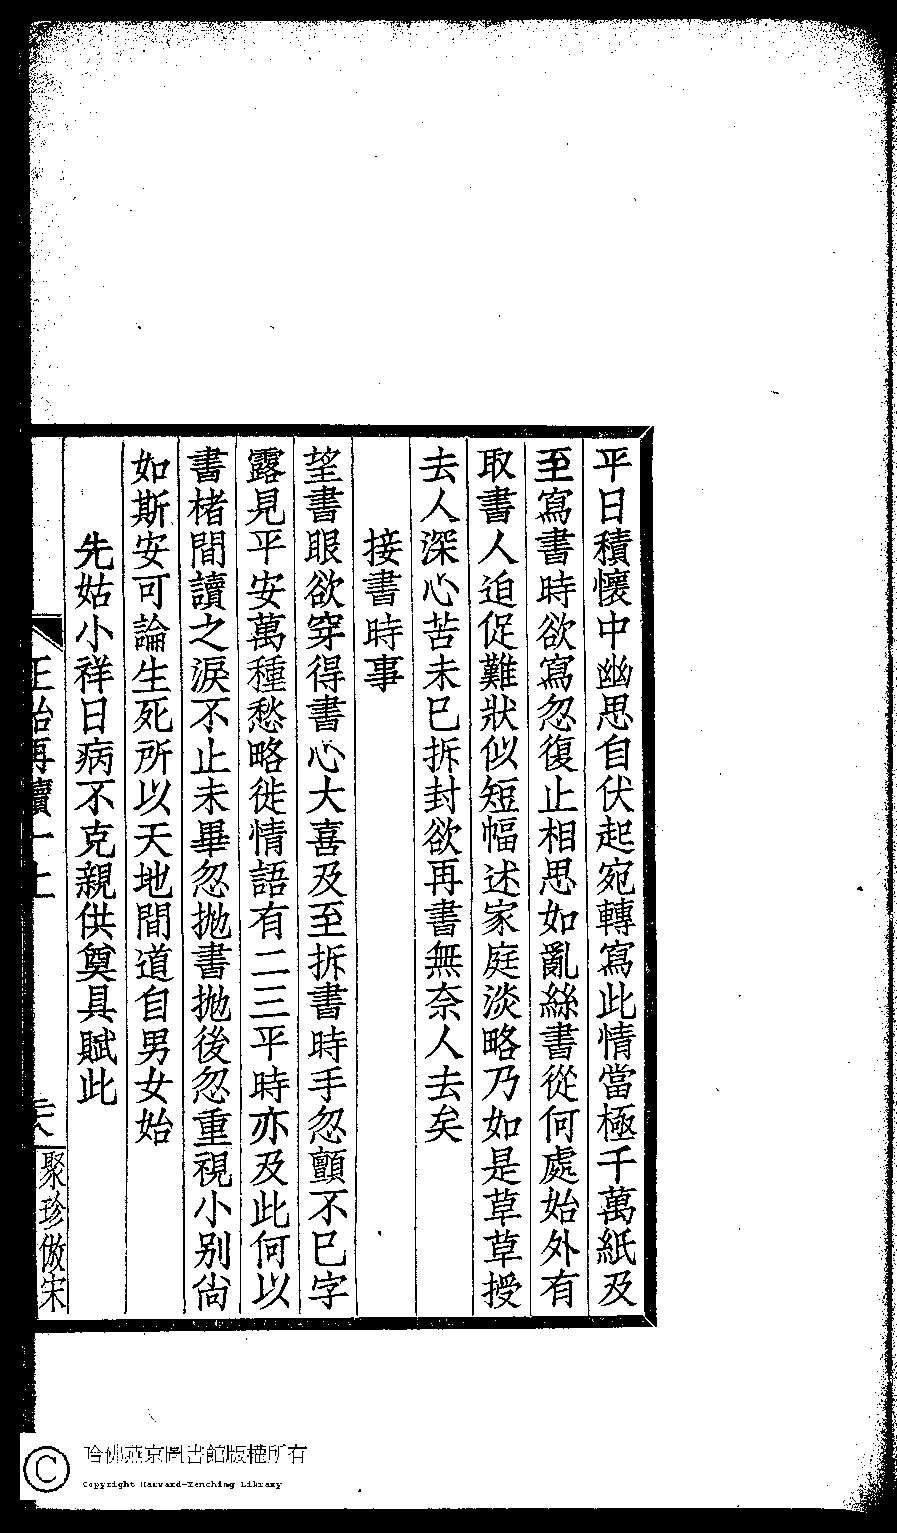 平日積懷中幽思自伏起宛轉寫此情當極千萬紙及
至寫書時欲寫忽復止相思如亂絲書從何處始外有
取書人迫促難狀似短幅述家庭淡略乃如是草草授
去人深心苦未已拆封欲再書無奈人去矣
接書時事
望書眼欲穿得書心大喜及至拆書時手忽顫不已字
露見平安萬種愁略徙情語有二三平時亦及此何以
書楮間讀之淚不止未畢忽拋書拋後忽重視小别尙
如斯安可論生死所以天地間道自男女始
先姑小祥日病不克親供奠具賦此
再續一上
聚珍倣宋
哈佛燕京圖書館版權所有
Copyright Harvard-Yenching Library